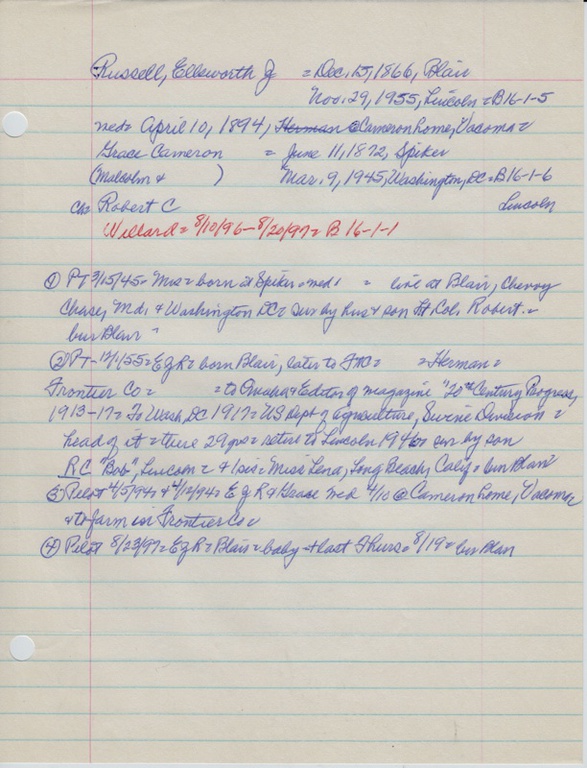 Russell, Ellsworth J = Dec. 15, 1866, Blair
Nov. 29, 1955, Lincoln = B16-1-5
med = April 10, 1894, Herman @ Cameron home, Vacoma =
Grace Cameron = June 11, 1872, Spiker
(Malcolm & ) Mar. 9, 1945, Washington, DC = B16-1-6
ch = Robert C Lincoln
Willard = 8/10/96 - 8/20/97 = B 16-1-1
① PT 3/15/45 = Mrs = born at Spiker = med = live at Blair, Chevy
Chase, Md. & Washington DC = sur by hus & son Lt. Col. Robert =
bur Blair
② PT - 12/1/55 = EJR = born Blair, later to = Herman =
Frontier Co = = to Omaha = Editor of magazine "20th Century Progress,
1913-17 = To Wash, DC 1917 = US Dept of Agriculture, Swine Division =
head of it = there 29 yrs = retire to Lincoln 1946 sur by son
RC "Bob", Lincoln = & 1 sis = Miss Lena, Long Beach, Calif = bur Blair
③ Pilot 4/5/94 & 4/12/94 = EJR & Grace med 4/10 @ Cameron home, Vacoma
& to farm in Frontier Co =
④ Pilot 8/23/97 = EJR = Blair = baby + last Thurs = 8/19 = bur Blair